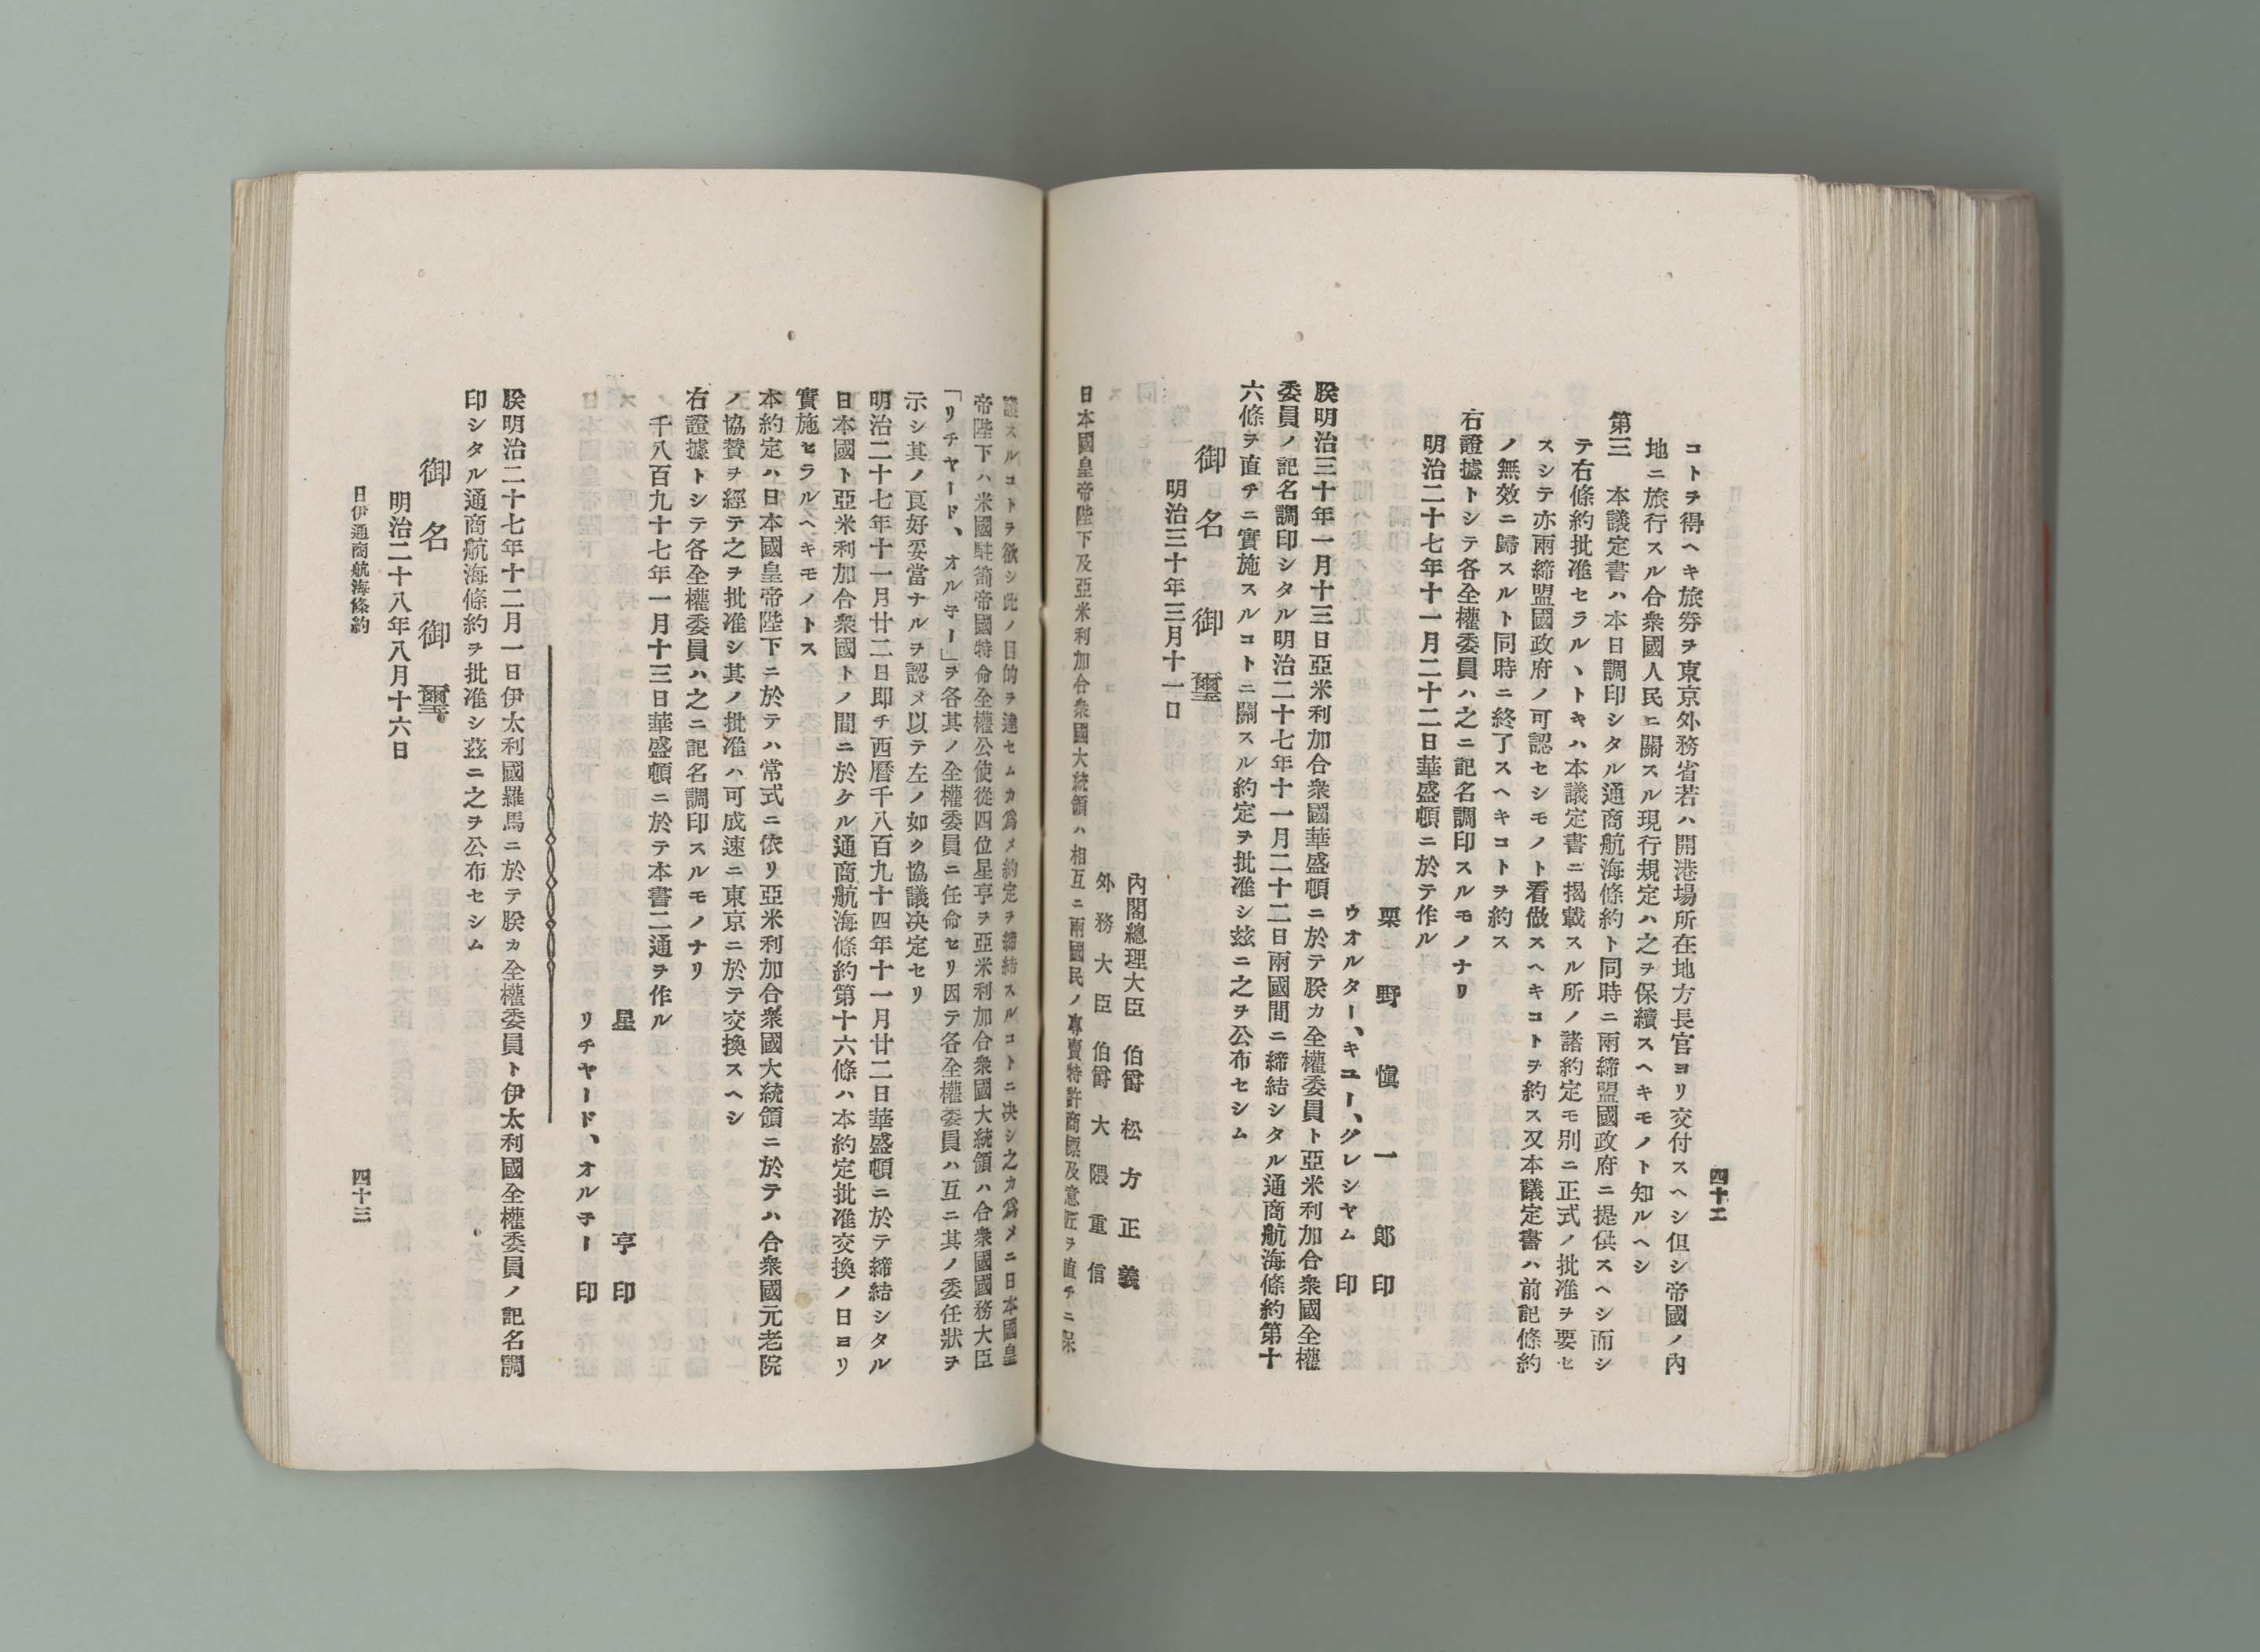 四十二
コトヲ得ヘキ旅券ヲ東京外務省若ハ開港場所在地方長官ヨリ交付スヘシ但シ帝國ノ內
地ニ旅行スル合衆國人民ニ關スル現行規定ハ之ヲ保續スヘキモノト知ルヘシ
第三　本議定書ハ本日調印シタル通商航海條約ト同時ニ兩締盟國政府ニ提供スヘシ而シ
テ右條約批准セラルヽトキハ本議定書ニ揭載スル所ノ諸約定モ別ニ正式ノ批准ヲ要セ
スシテ亦兩締盟國政府ノ可認セシモノト看做スヘキコトヲ約ス又本議定書ハ前記條約
ノ無效ニ歸スルト同時ニ終了スヘキコトヲ約ス
右證據トシテ各全權委員ハ之ニ記名調印スルモノナリ
明治二十七年十一月二十二日華盛頓ニ於テ作ル
栗野愼一郎印
ウオルター、キユー、グレシヤム印
朕明治三十年一月十三日亞米利加合衆國華盛頓ニ於テ朕カ全權委員ト亞米利加合衆國全權
委員ノ記名調印シタル明治二十七年十一月二十二日兩國間ニ締結シタル通商航海條約第十
六條ヲ直チニ實施スルコトニ關スル約定ヲ批准シ玆ニ之ヲ公布セシム
御名御璽
明治三十年三月十一日
內閣總理大臣　伯爵　松方正義
外務大臣　伯爵　大隈重信
日本國皇帝陛下及亞米利加合衆國大統領ハ相互ニ兩國民ノ專賣特許商標及意匠ヲ直チニ保
護スルコトヲ欲シ此ノ目的ヲ達セムカ爲メ約定ヲ締結スルコトニ决シ之カ爲メニ日本國皇
帝陛下ハ米國駐箚帝國特命全權公使從四位星亨ヲ亞米利加合衆國大統領ハ合衆國國務大臣
「リチヤード、オルネー」ヲ各其ノ全權委員ニ任命セリ因テ各全權委員ハ互ニ其ノ委任狀ヲ
示シ其ノ良好妥當ナルヲ認メ以テ左ノ如ク協議决定セリ
明治二十七年十一月廿二日卽チ西曆千八百九十四年十一月廿二日華盛頓ニ於テ締結シタル
日本國ト亞米利加合衆國トノ間ニ於ケル通商航海條約第十六條ハ本約定批准交換ノ日ヨリ
實施セラルヘキモノトス
本約定ハ日本國皇帝陛下ニ於テハ常式ニ依リ亞米利加合衆國大統領ニ於テハ合衆國元老院
ノ協贊ヲ經テ之ヲ批准シ其ノ批准ハ可成速ニ東京ニ於テ交換スヘシ
右證據トシテ各全權委員ハ之ニ記名調印スルモノナリ
千八百九十七年一月十三日華盛頓ニ於テ本書二通ヲ作ル
星亨印
リチヤード、オルネー印
朕明治二十七年十二月一日伊太利國羅馬ニ於テ朕カ全權委員ト伊太利國全權委員ノ記名調
印シタル通商航海條約ヲ批准シ茲ニ之ヲ公布セシム
御名御璽
明治二十八年八月十六日
日伊通商航海條約
四十三